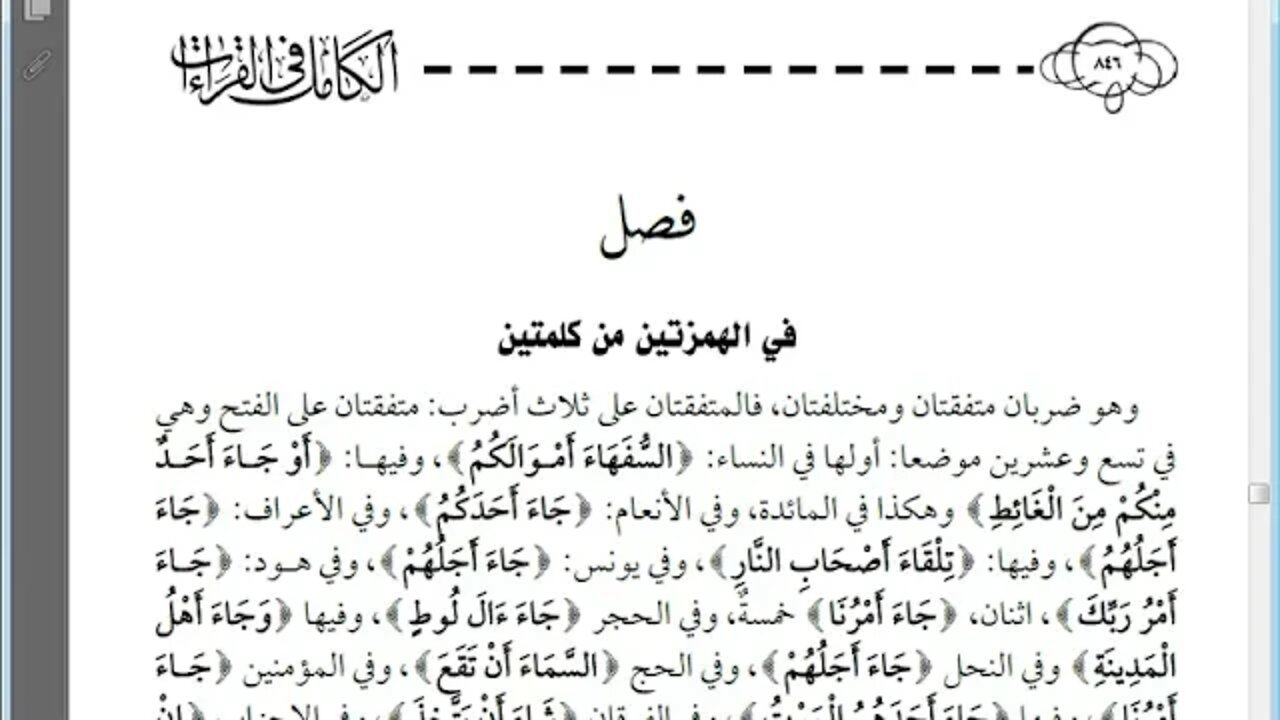 ٨٤٦
الكامل في القراءات
فصل
في الهمزتين من كلمتين
وهو ضربان متفقتان ومختلفتان، فالمتفقتان على ثلاث أضرب: متفقتان على الفتح وهي
في تسع وعشرين موضعا: أولها في النساء: ﴿السُّفَهَاءَ أَمْوَالَكُمُ﴾، وفيها: ﴿أَوْ جَاءَ أَحَدٌ
مِنْكُمْ مِنَ الْغَائِطِ﴾ وهكذا في المائدة، وفي الأنعام: ﴿جَاءَ أَحَدَكُمُ﴾، وفي الأعراف: ﴿جَاءَ
أَجَلُهُمْ﴾، وفيها: ﴿تِلْقَاءَ أَصْحَابِ النَّارِ﴾، وفي يونس: ﴿جَاءَ أَجَلُهُمْ﴾، وفي هود: ﴿جَاءَ
أَمْرُ رَبِّكَ﴾، اثنان، ﴿جَاءَ أَمْرُنَا﴾ خمسةٌ، وفي الحجر ﴿جَاءَ ءَالَ لُوطٍ﴾، وفيها ﴿وَجَاءَ أَهْلُ
الْمَدِينَةِ﴾ وفي النحل ﴿جَاءَ أَجَلُهُمْ﴾، وفي الحج ﴿السَّمَاءَ أَنْ تَقَعَ﴾، وفي المؤمنين ﴿جَاءَ
أَمْرُنَا﴾، وفيها ﴿جَاءَ أَحَدَهُمُ الْمَوْتُ﴾، وفي الفرقان ﴿شَاءَ أَنْ يَتَّخِذَ﴾، وفي الأحزاب ﴿إِنْ